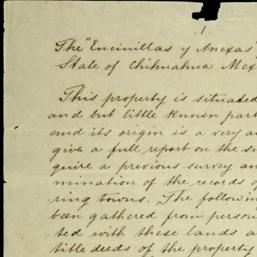 1
The "Encinillas y Anexas"
State of Chihuahua Mex
This property is situated
and but little known part
and its origin is a very an
give a full report on the su
quire a previous survey an
mination of the records o
ring towns. The followin
been gathered from person
ted with these lands a
title deeds of the property